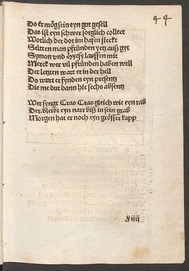 44
Do er mög sein eyn gut gesell
Das ist eyn schwer sorglich collect
Worlich der dot im hafen steckt
Seltten man pfrunden yetz auß gyt
Symon vnd Hyesy lauffen mit
Merck wer vil pfrunden haben well
Der letzten wart er in der hell
Do wurt er fynden eyn presentz
Die me dut dann hie sechs absentz
Wer syngt Cras Cras gleich wie eyn rab
Der bleibt eyn narr biß in sein grab
Morgen hat er noch eyn grösser kapp
F iiij